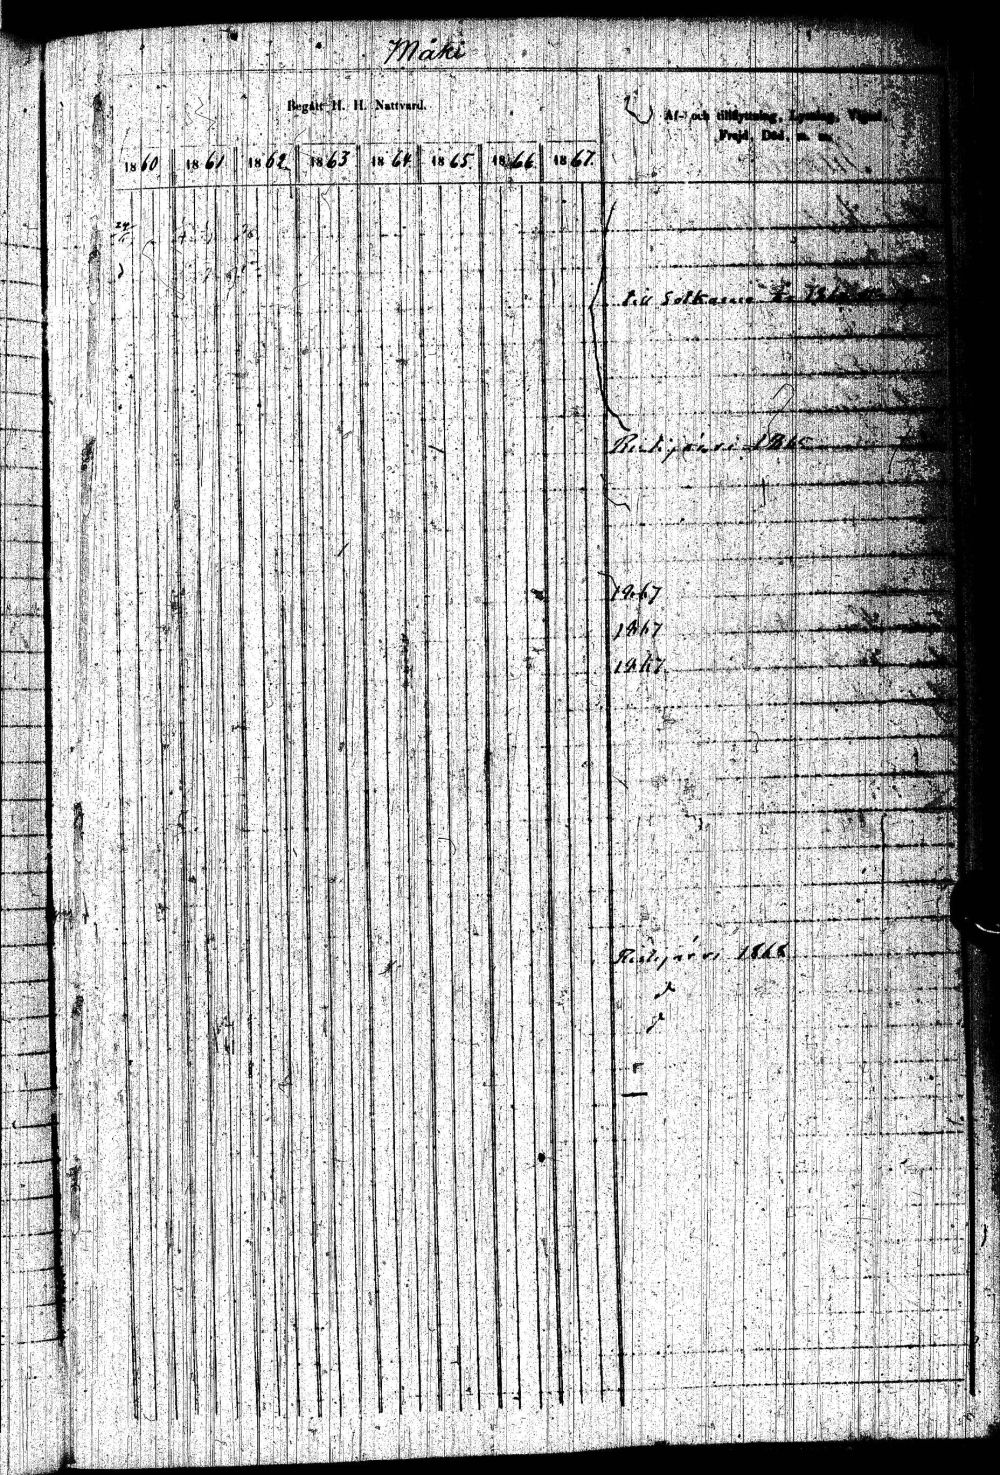 Mäki
Begått H. H. Nattvard.
Af- och tillflyttning, Lysning, Vigsel,
Frejd, Död, m. m.
1860 1861 1862 1863 1864 1865 1866 1867
24
till Sotkamo
Ristijärvi 1865
1867
1867
1867
Ristijärvi 1868